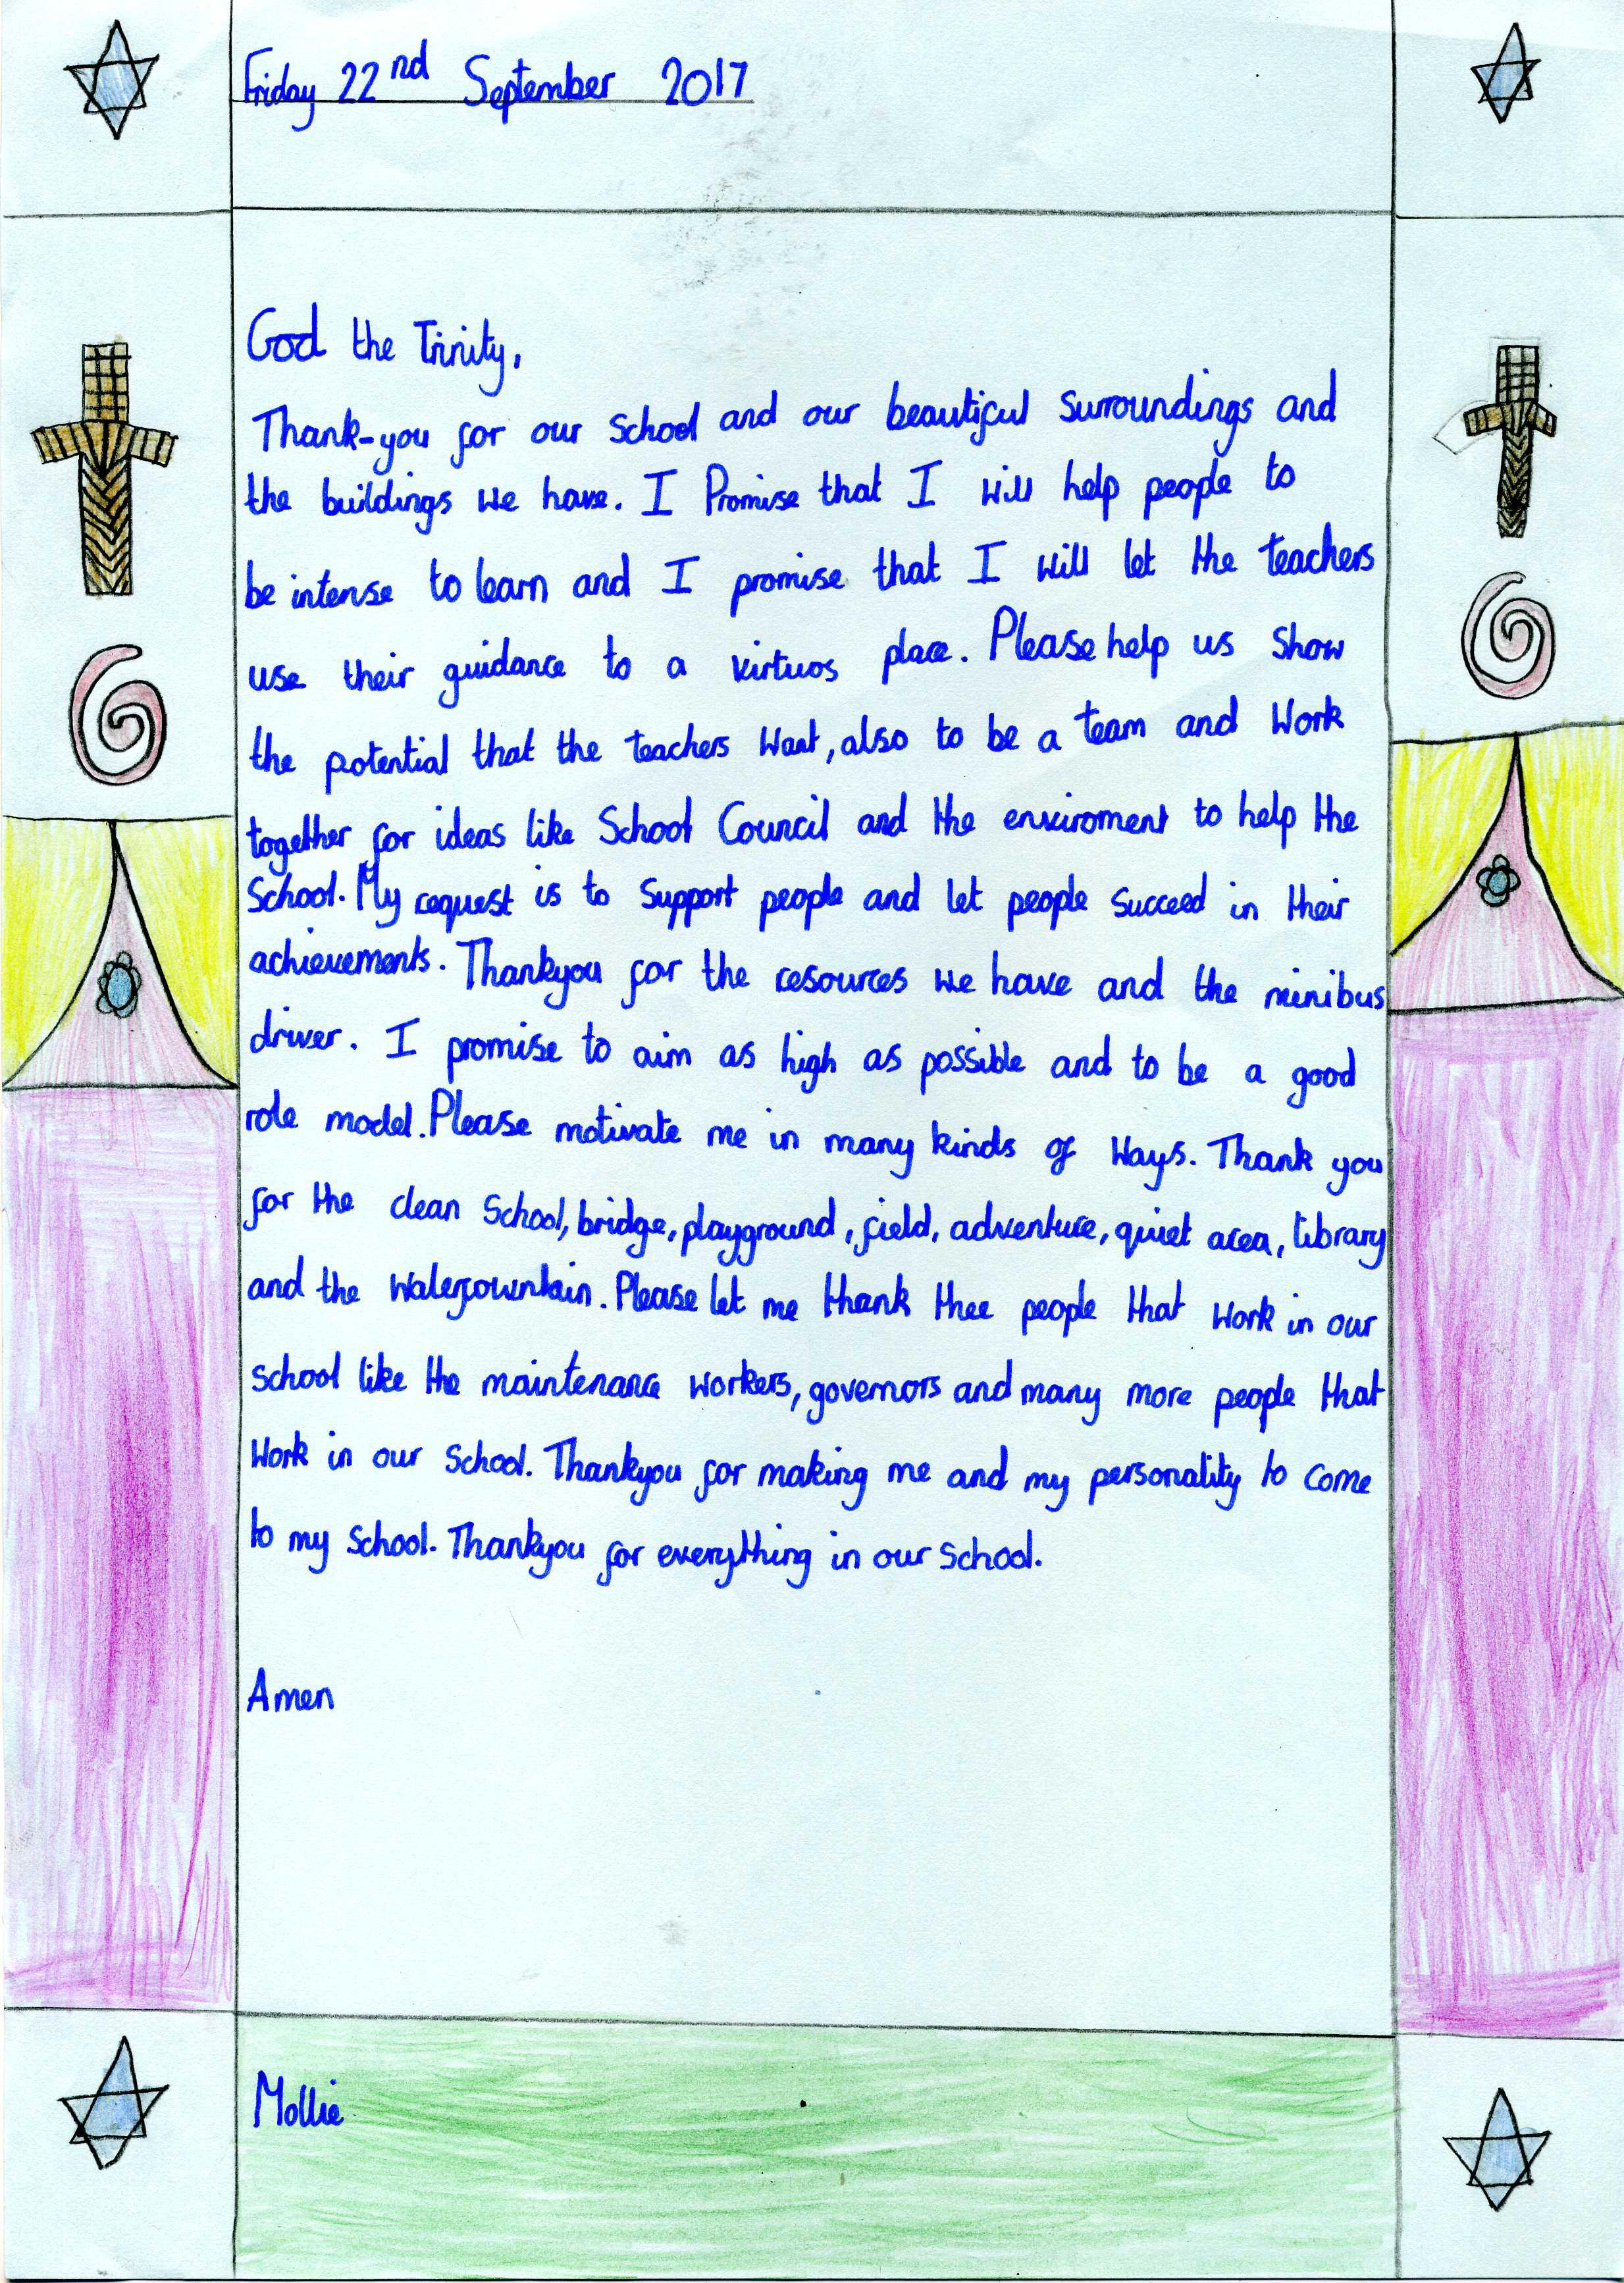 Friday 22nd September 2017
God the Trinity,
Thank-you for our School and our beautiful Surroundings and
the buildings we have. I Promise that I will help people to
be intense to learn and I promise that I will let the teachers
use their guidance to a virtuos place. Please help us Show
the potential that the teachers Want, also to be a team and Work
together for ideas like School Council and the enviroment to help the
School. My request is to Support people and let people Succeed in their
achievements. Thankyou for the resources we have and the minibus
driver. I promise to aim as high as possible and to be a good
role model. Please motivate me in many kinds of Ways. Thank you
for the clean School, bridge, playground, field, adventure, quiet area, library
and the Waterfountain. Please let me thank thee people that work in our
School like the maintenance workers, governors and many more people that
Work in our School. Thankyou for making me and my personality to come
to my School. Thankyou for everything in our School.
Amen
Mollie